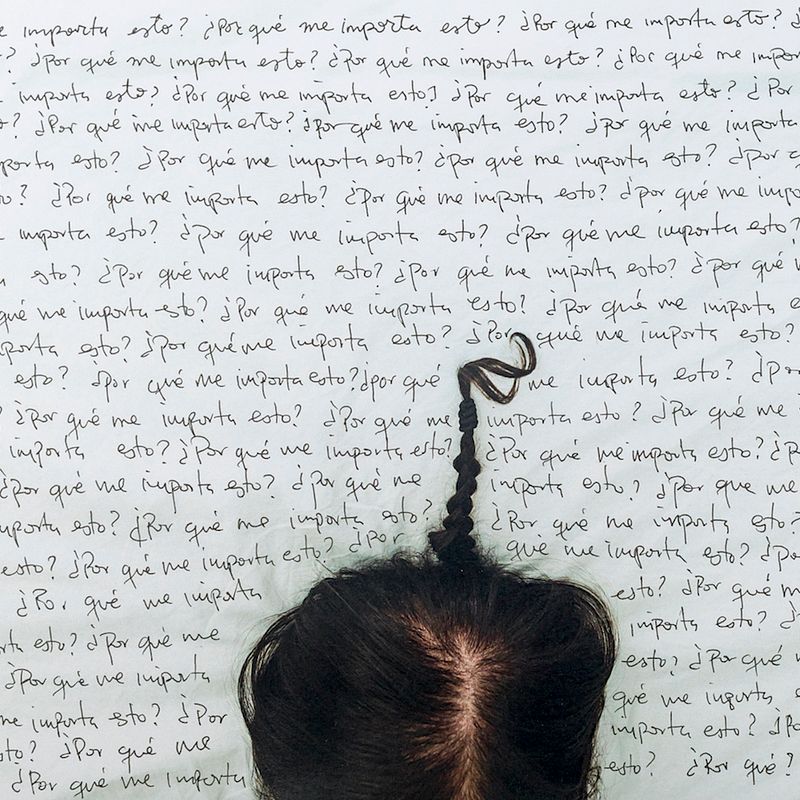 e importa esto? ¿Por qué me importa esto? ¿Por qué me importa esto? ¿
? ¿Por qué me importa esto? ¿Por qué me importa esto? ¿Por qué me impor
importa esto? ¿Por qué me importa esto? ¿Por qué me importa esto? ¿Por
o? ¿Por qué me importa esto? ¿Por qué me importa esto? ¿Por qué me importa
porta esto? ¿Por qué me importa esto? ¿Por qué me importa esto? ¿Por q
o? ¿Por qué me importa esto? ¿Por qué me importa esto? ¿por qué me impo
importa esto? ¿Por qué me importa esto? ¿Por qué me importa esto?
a esto? ¿Por qué me importa esto? ¿Por qué me importa esto? ¿Por qué
qué me importa esto? ¿Por qué me importa esto? ¿Por qué me importa e
porta esto? ¿Por qué me importa esto? ¿Por qué me importa esto?
esto? ¿por qué me importa esto? ¿por qué me importa esto? ¿P
? ¿Por qué me importa esto? ¿Por qué me importa esto? ¿Por qué me
importa esto? ¿Por qué me importa esto? ¿Por qué me importa esto? ¿P
¿Por qué me importa esto? ¿Por qué me importa esto? ¿Por que me
importa esto? ¿Por qué me importa esto? ¿Por qué me importa esto?
esto? ¿Por qué me importa esto? ¿Por qué me importa esto? ¿Po
¿Por qué me importa esto? ¿Por qué m
rta esto? ¿Por qué me importa esto? ¿
¿Por qué me importa esto? ¿Por qué
me importa esto? ¿Por qué me importa e
sto? ¿Por qué me importa esto? ¿Po
¿Por qué me importa esto? ¿Por qué?